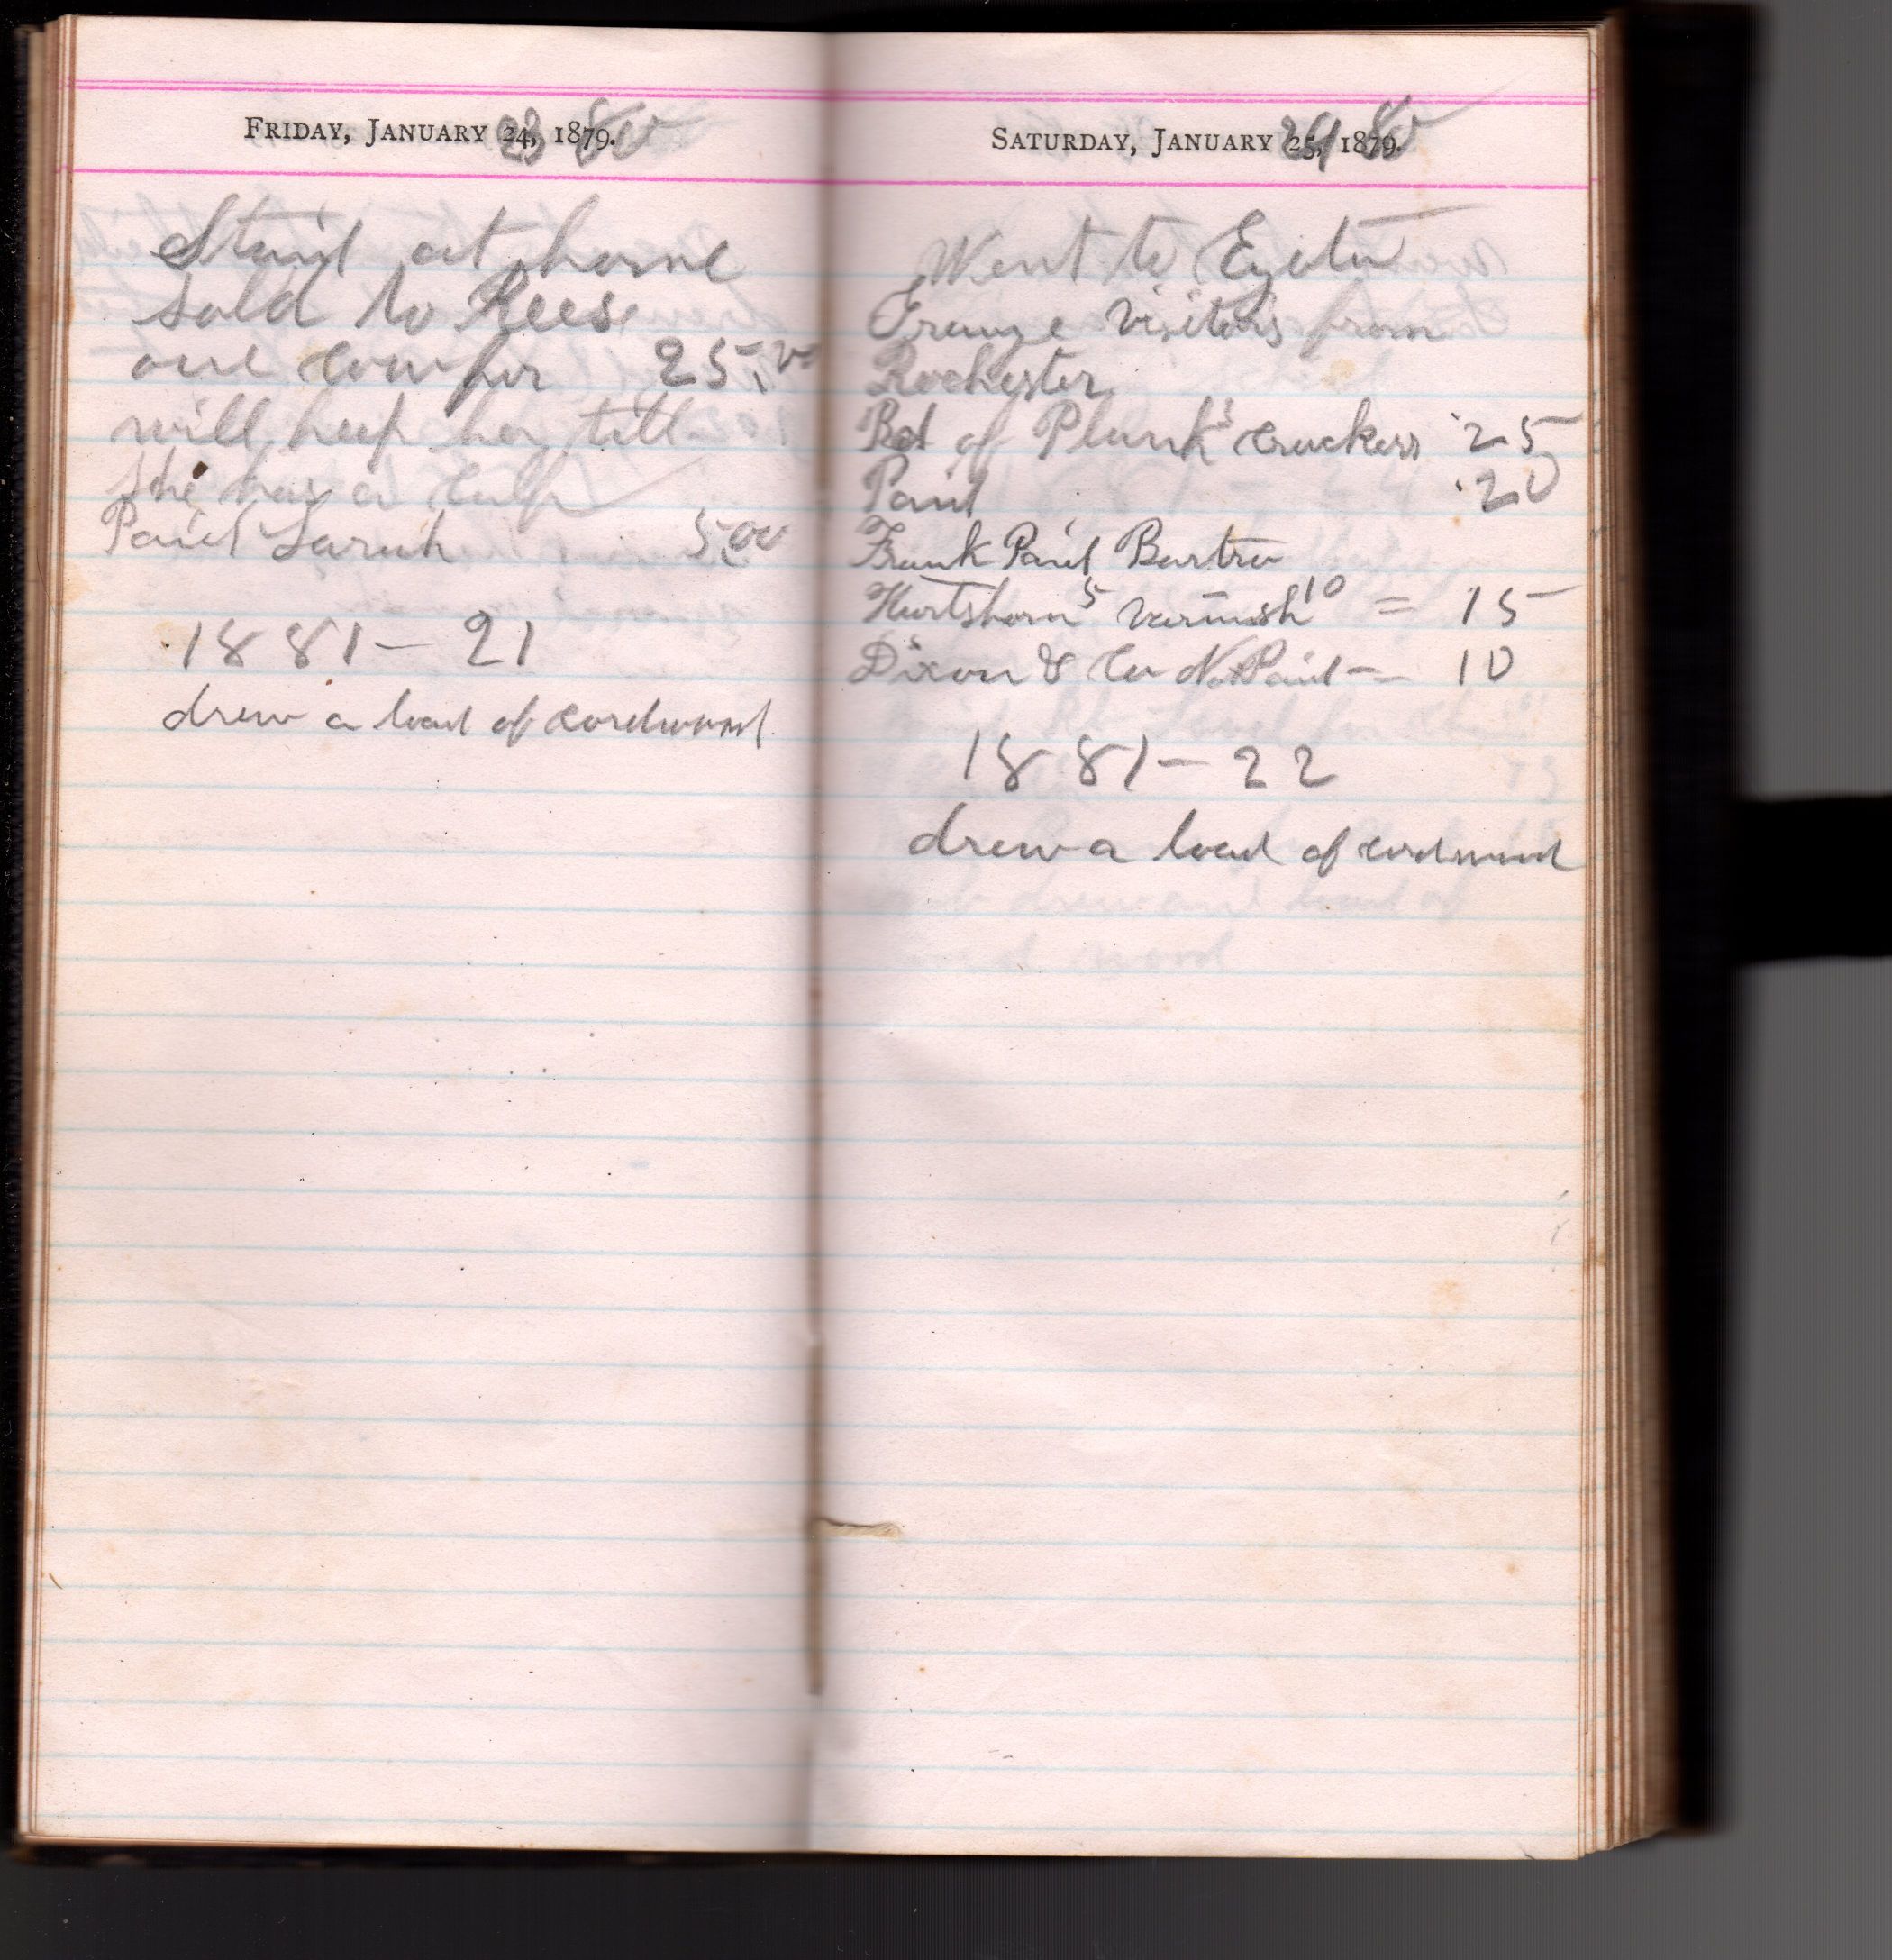 FRIDAY, JANUARY 24, 1879.
23 80
Staid at home
sold to Rees
one cow for 25,00
will keep her till
she has a calf
Paid Sarah 5,00
1881 - 21
drew a load of cordwood
SATURDAY, JANUARY 25, 1879.
24 80
Went to
Grange visitors from
Rochester
Bot of Plunk's crackers .25
Paid .20
Frank Paid Bartro
Hartshorn 5 varnish 10 = 15
Dixon & Co Not Paid - 10
1881 - 22
drew a load of cordwood